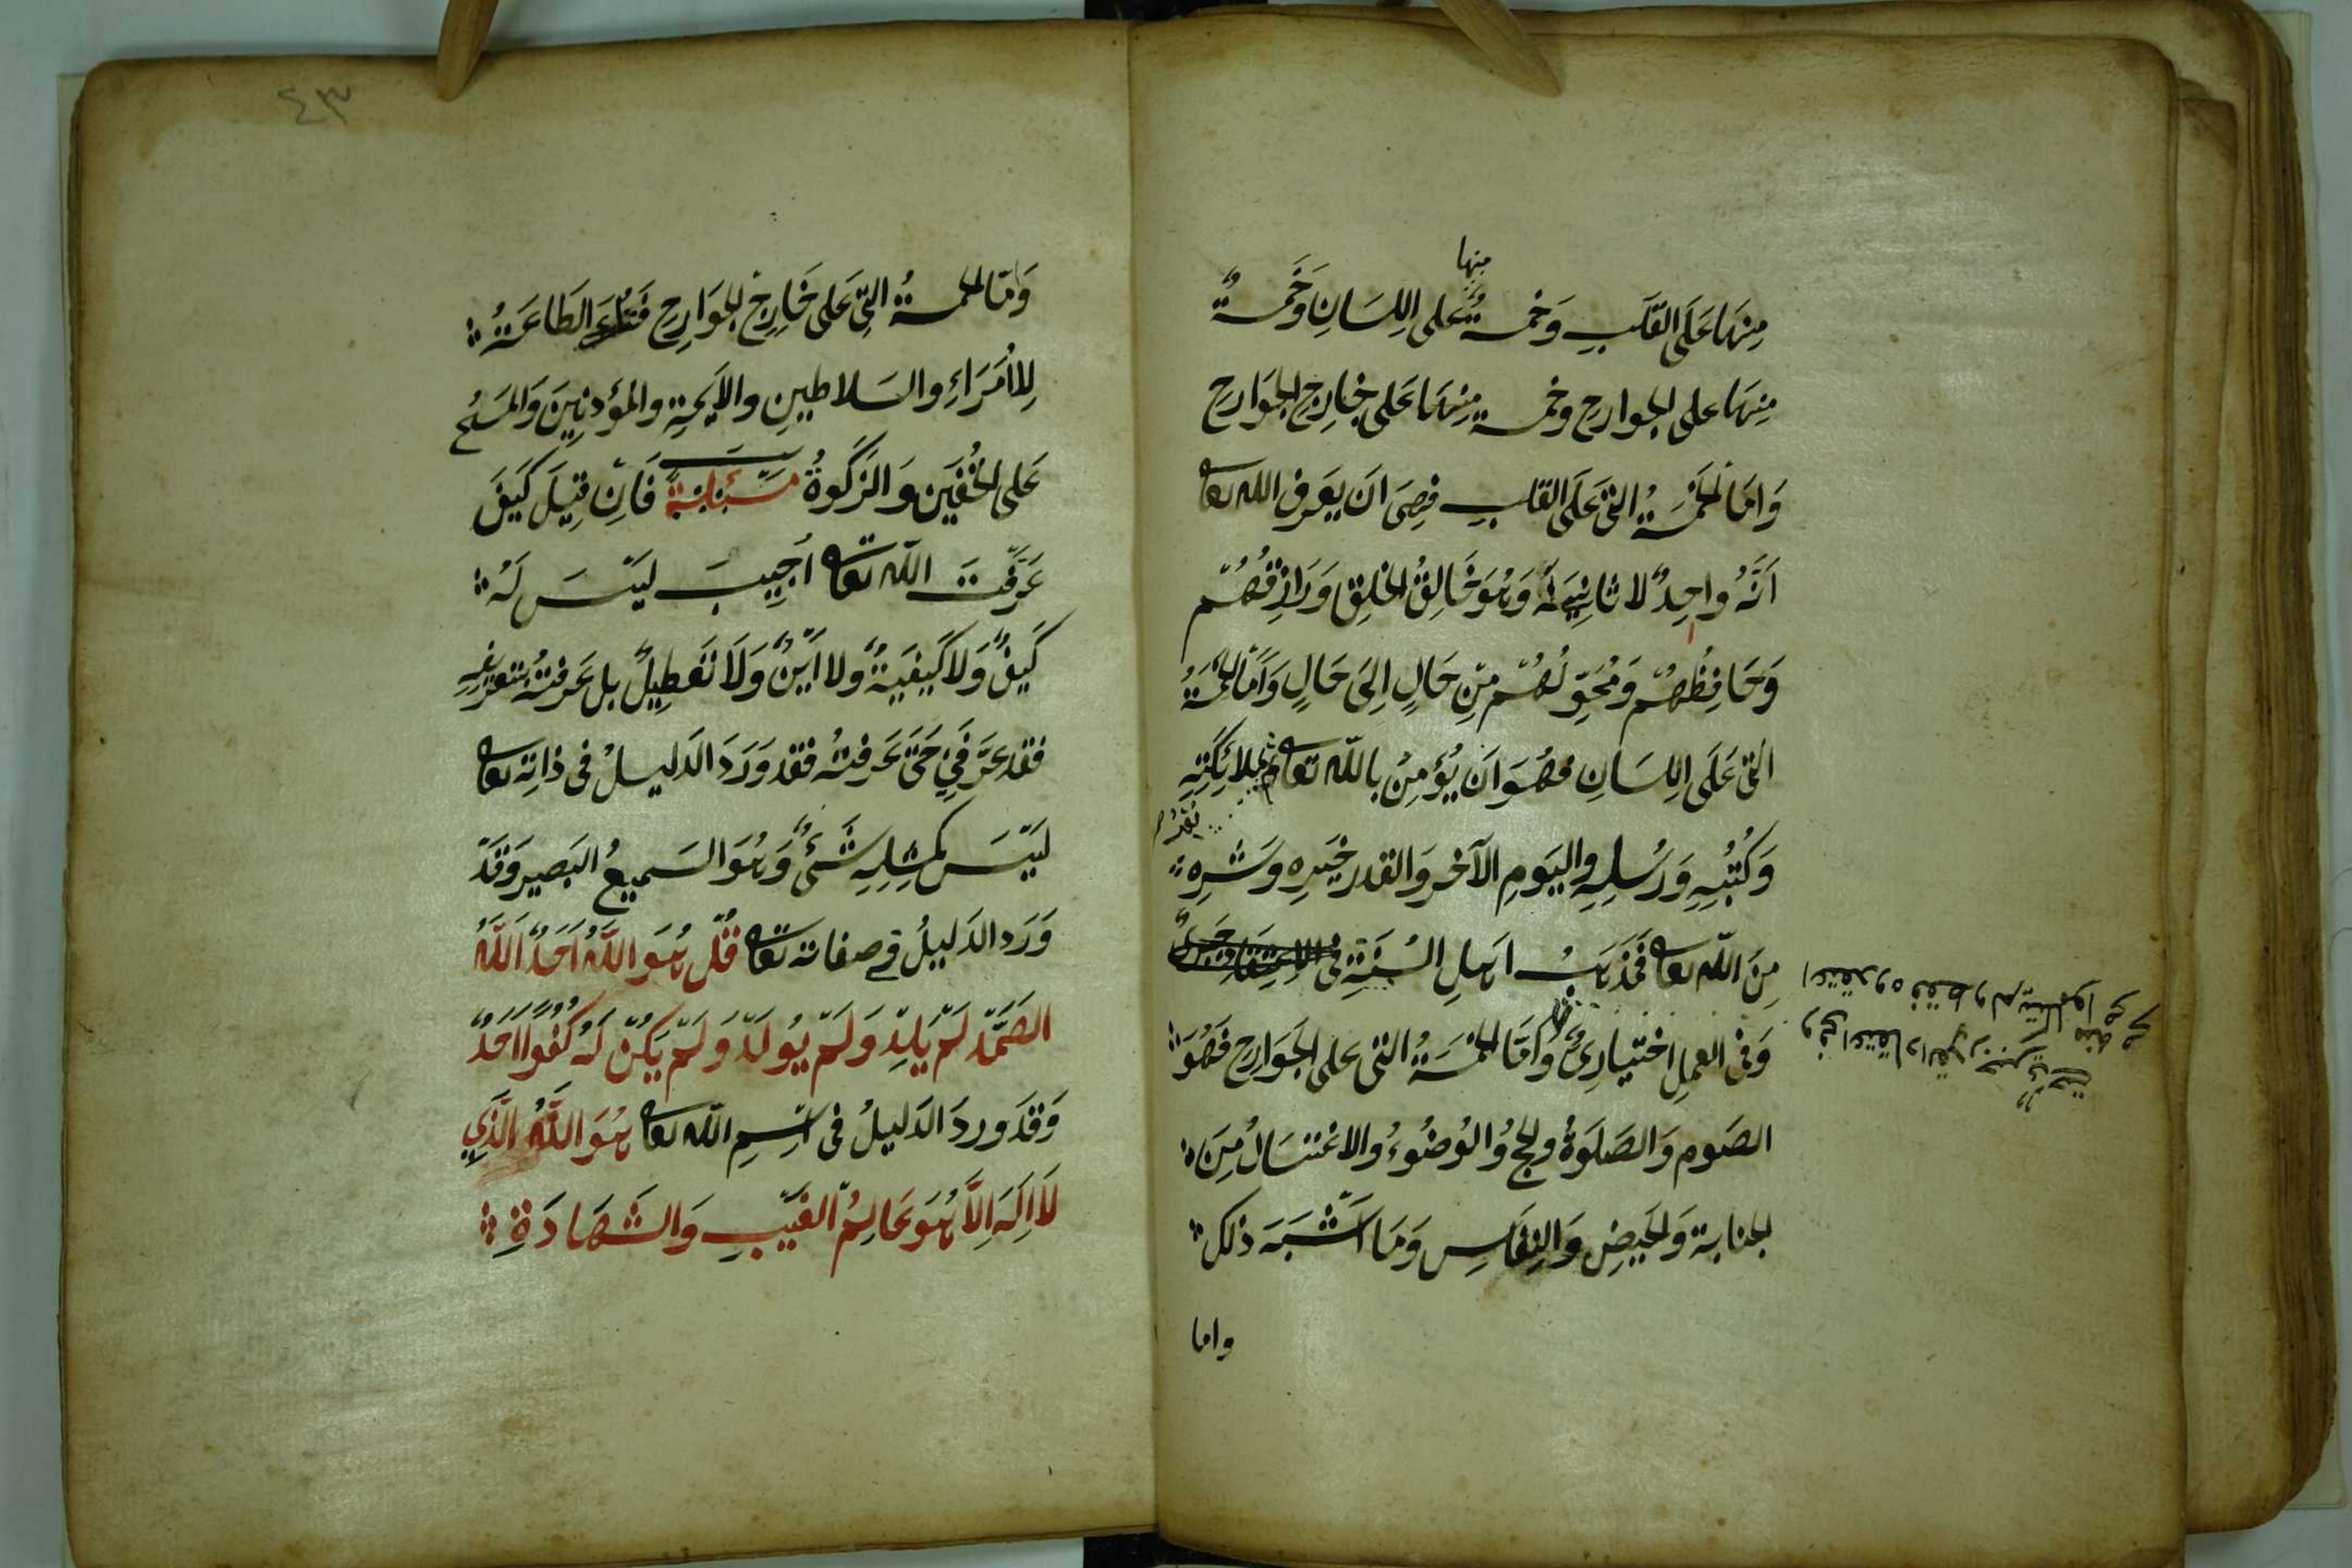 منها
مِنهَا عَلَى القَلبِ وَخمسةٌ عَلى اللِسَانِ وَخَمسةٌ
مِنهَا على الجوارح وخمسة مِنهَا عَلى خَارِج الجَوَارِح
وَامَا الخَمْسَةُ التى عَلَى القلبِ فهِىَ ان يَعرف الله تعا
اَنَّهُ واحِدٌ لا ثانِيَ لَهُ وَهُوَ خَالِقُ الخلق وَرَازِقهُمْ
وَحَافِظُهُمْ وَمُحَوِّلُهُمْ مِنْ حَالٍ اِلىَ حَالٍ وَاَمّا الخمسَةُ
التى عَلَى اللِسَانِ فهُوَ اَن يُؤمِنُ بالله تعا وبملائِكَتِهِ
وَكُتُبِهِ وَرُسُلِهِ واليَومِ الآخر وَالقدر خَيرِه وَشرِه
مِنَ اللّه تعا فمَذهَبُ اَهلِ السُنَةِ فى
وَفى العملِ اختيارِىٌ وَاَمَّا الخمْسَةُ التى على الجَوَارِح فَهُوَ
الصَوم وَالصَلَوةُ والحج وُالوُضُوءُ والاغتسَالُ مِنَ
الجنابة وَالحَيضِ وَالنِفَاسِ وَمَا اَشْبَهَ ذلك
واما
٤٣
وَامّا الخمسةُ التِى عَلى خَارِج الجوَارِح الطَاعَةُ
لِلاُمَرَاءِ والسَلاطِينِ والاَيمةِ والمؤذنِينَ وَالمَسْحُ
عَلى الخُفَّينِ وَالزَكَوةُ مسئلة فَاِنْ قِيلَ كَيفَ
عَرَفْتَ اللّه تعا اُجِيبَ ليْسَ لَهُ
كَيفٌ وَلا كَيفيَةٌ ولا اَيْنٌ وَلاَ تَعطِيلٌ بل عَرفتهُ بتعريفِهِ
فقد عَرَّفَنِى حَتّى عَرفتُه فقد وَرَدَ الدَليلُ فى ذاتِه تعا
لَيْسَ كَمثلِهِ شَىءٌ وَهُوَ السَميعُ البَصير وَقَدْ
وَرَد الدَليلُ فى صفاته تعا قُلْ هُوَ اللّهُ اَحَدٌ اَللّهُ
الصَمَدُ لَمْ يَلِدْ وَلَمْ يُولَدْ وَلَمْ يَكُنْ لَهُ كُفُوًا اَحَدٌ
وَقدَ وردَ الدَليلُ فى اسْمِ اللّه تعا هُوَ اللّهُ الَّذِي
لاَ اِلَهَ اِلاَّ هُوَ عَالِمُ الغَيْبِ وَالشَهَادَةِ